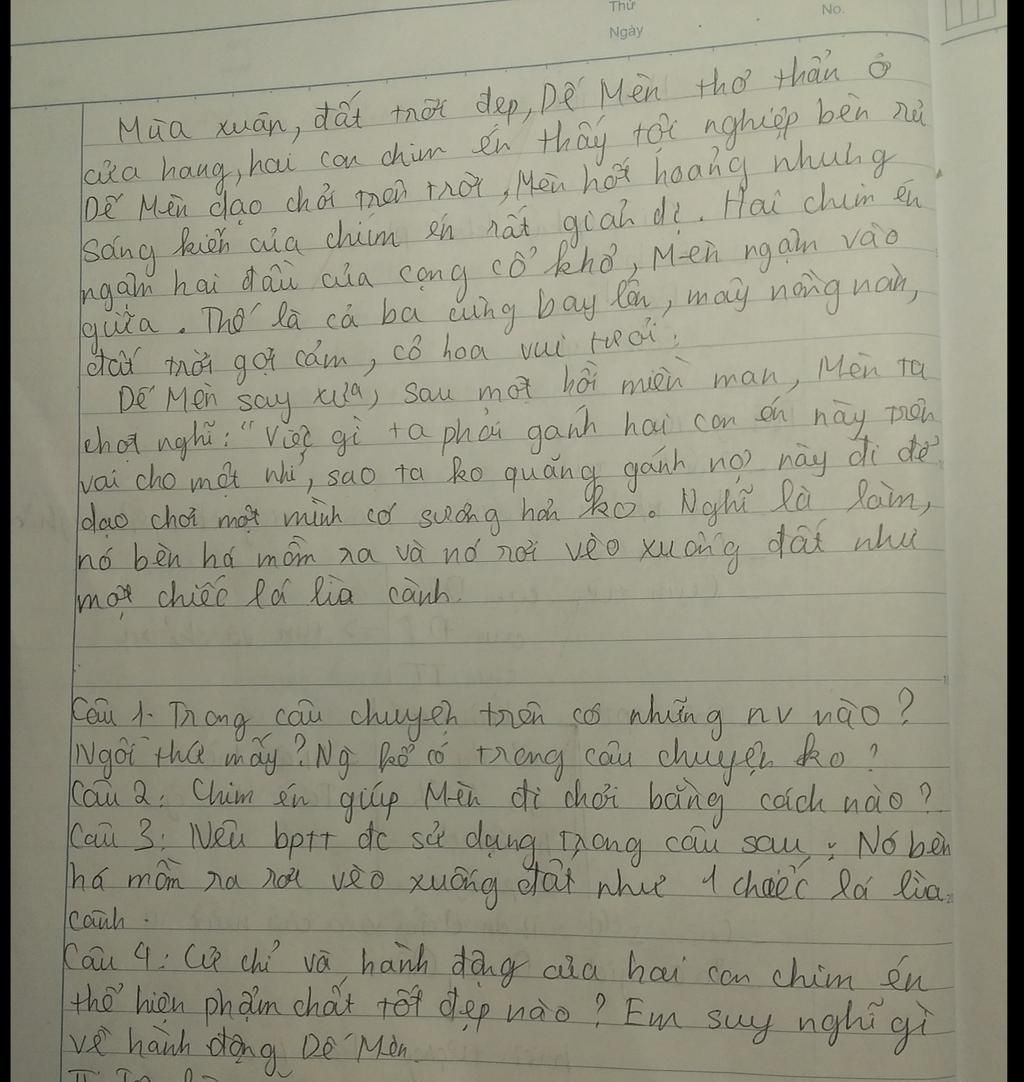 Thứ
Ngày
No.
Mùa xuân, đất trời đẹp, Dế Mèn thơ thẩn ở
cửa hang, hai con chim én thấy tội nghiệp bèn rủ
Dế Mèn dạo chơi trên trời, Mèn hốt hoảng nhưng
sáng kiến của chim én rất giản dị. Hai chim én
ngậm hai đầu của cọng cỏ khô, Mèn ngậm vào
giữa. Thế là cả ba cùng bay lên, mây nồng nàn,
đất trời gợi cảm, cỏ hoa vui tươi.
Dế Mèn say xưa, sau một hồi miên man, Mèn ta
chợt nghĩ: "Việc gì ta phải gánh hai con én này trên
vai cho mệt nhỉ, sao ta ko quẳng gánh nợ này đi để
dạo chơi một mình có sướng hơn ko. Nghĩ là làm,
nó bèn há mồm ra và nó rơi vèo xuống đất như
một chiếc lá lìa cành.
Câu 1. Trong câu chuyện trên có những nv nào?
Ngôi thứ mấy? Ng kể có trong câu chuyện ko?
Câu 2: Chim én giúp Mèn đi chơi bằng cách nào?
Câu 3: Nêu bptt đc sử dụng trong câu sau: Nó bèn
há mồm ra rơi vèo xuống đất như 1 chiếc lá lìa
cành.
Câu 4: Cử chỉ và hành động của hai con chim én
thể hiện phẩm chất tốt đẹp nào? Em suy nghĩ gì
về hành động Dế Mèn.